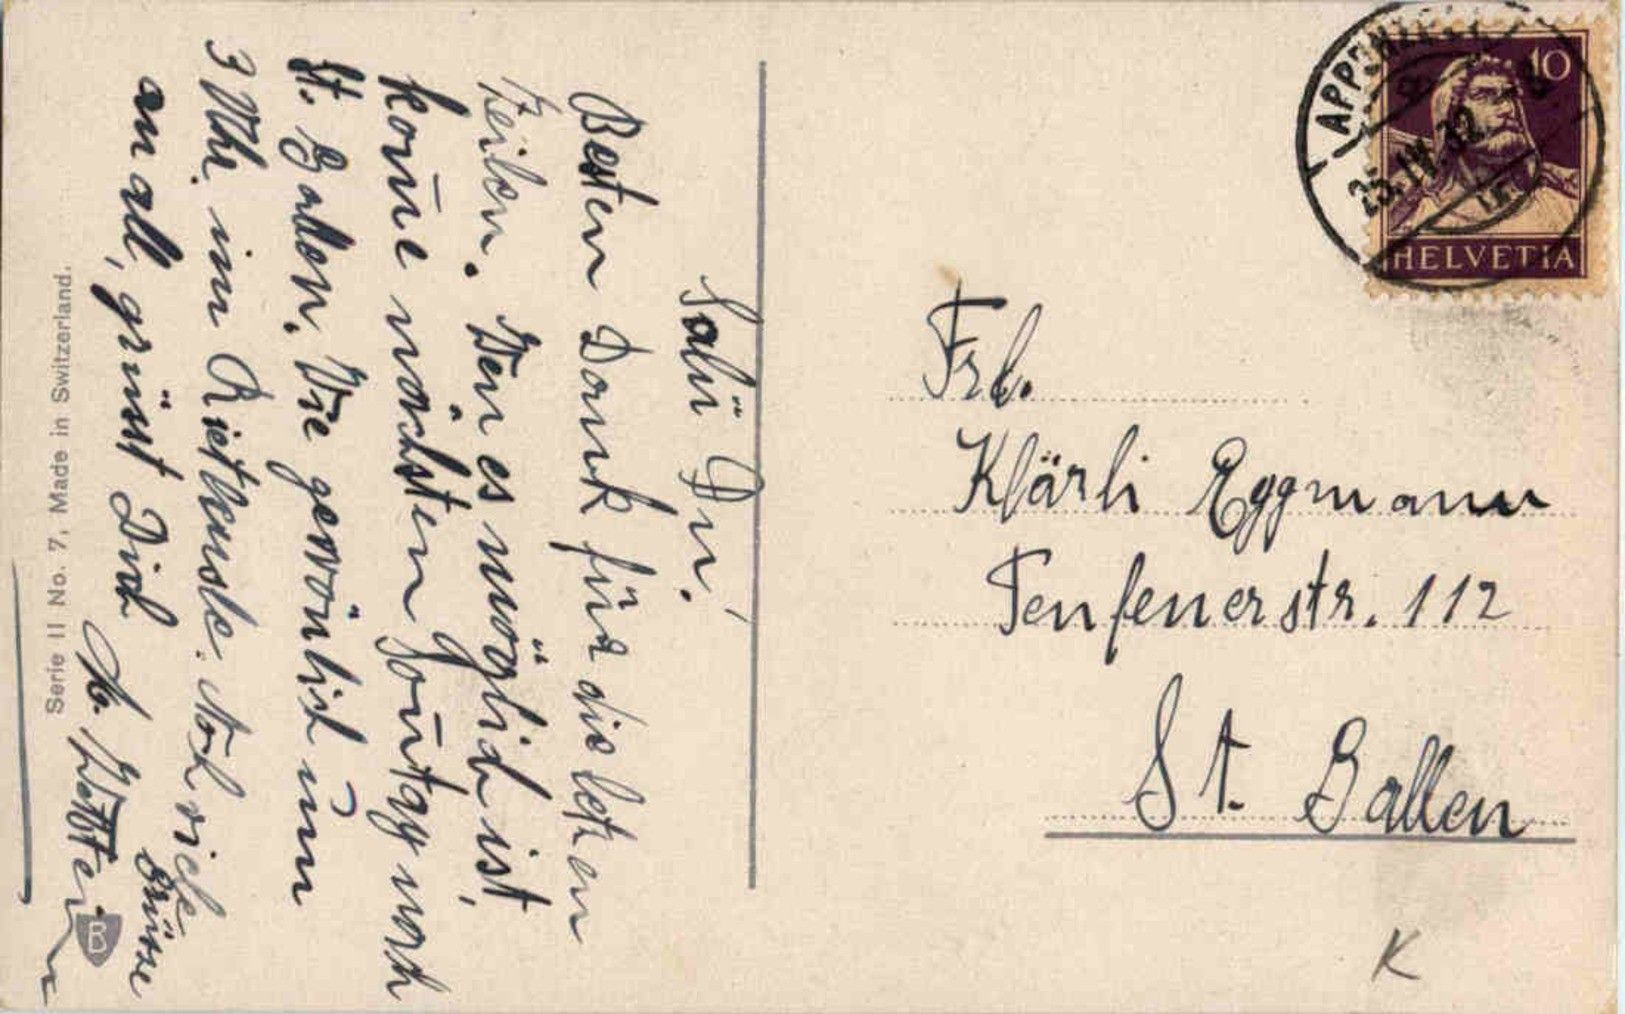 Salü Du!
Besten Dank für die letzen
Zeilen. Wen es möglich ist,
kom̄e nächsten Son̄tag nach
St. Gallen. Wie gewönlich um
3 Uhr im Rietheusle. Noch viele
Grüsse
an all, grüsst Dich
Serie II No. 7, Made in Switzerland.
B
APPENZELL
25.IV.32
10
HELVETIA
Frl.
Klärli Eggmann
Teufenerstr. 112
St. Gallen
K